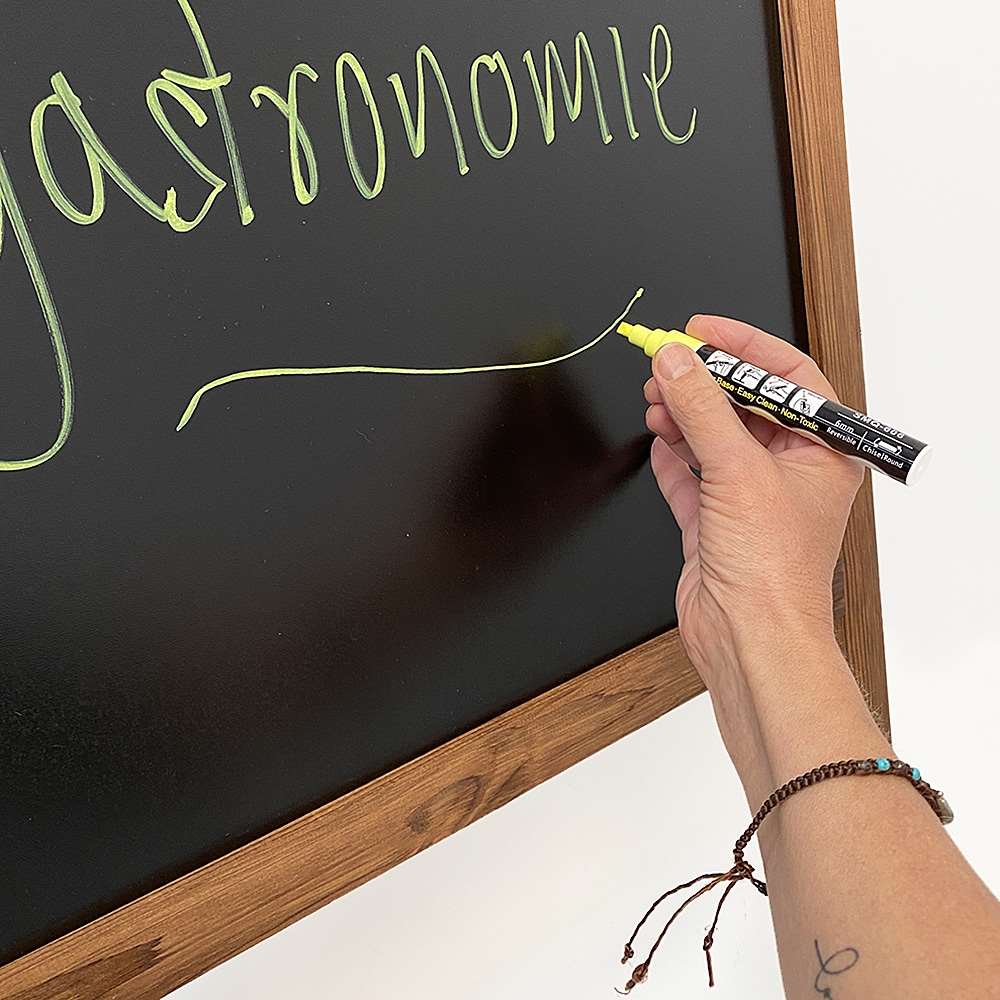 gastronomie
Base·Easy Clean·Non-Toxic
SMQ-808
6mm
Reversible
Chisel Round